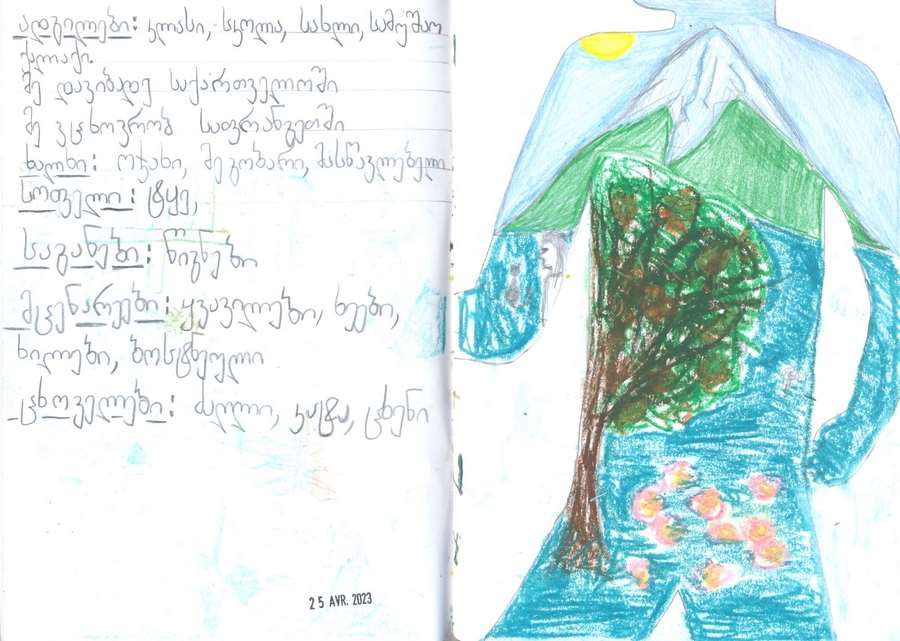 ადგილები: კლასი, სკოლა, სახლი, სამუშაო
ქალაქი.
მე დავიბადე საქართველოში
მე ვცხოვრობ საფრანგეთში
ხალხი: ოჯახი, მეგობარი, მასწავლებელი
სოფელი: ტყე,
საგანები: წიგნები
მცენარეები: ყვავილები, ხეები,
ხილები, ბოსტნეული
ცხოველები: ძაღლი, კატა, ცხენი
25 AVR. 2023